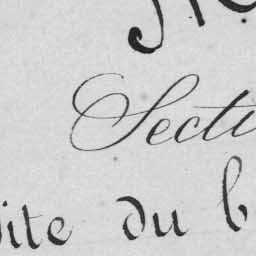 Secti
ite du b